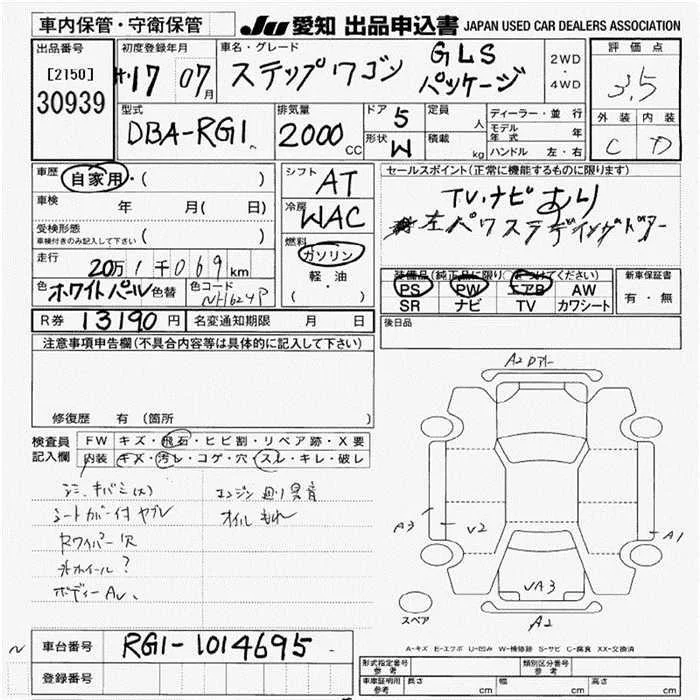 車内保管・守衛保管
JU 愛知 出品申込書 JAPAN USED CAR DEALERS ASSOCIATION
出品番号
[2150]
30939
初度登録年月
17 07月
車名・グレード
ステップワゴン GLS パッケージ
2WD
・
4WD
評価点
3.5
外装 内装
C D
型式
DBA-RG1
排気量
2000 CC
ドア 5
形状 W
定員 人
積載 kg
ディーラー・並行
モデル年式 年
ハンドル 左・右
車歴 自家用・( )
車検 年 月( 日)
受検形態 ( )
車検付きのみ記入して下さい
走行 20万1千069km
色 ホワイトパール 色替
色コード NH624P
シフト AT
冷房 WAC
燃料 ガソリン
軽・油
( )
セールスポイント(正常に機能するものに限ります)
TV.ナビあり
左パワスラディングドアー
装備品(純正品に限り○をつけてください)
PS PW エアB AW
SR ナビ TV カワシート
新車保証書
有・無
R券 13190円
名変通知期限 月 日
後日品
注意事項申告欄(不具合内容等は具体的に記入して下さい)
修復歴 有(箇所 )
検査員記入欄
FW キズ・飛石・ヒビ割・リペア跡・X要
内装 キズ・汚レ・コゲ・穴・スレ・キレ・破レ
シミ、キバミ(大)
シートカバー付ヤブレ
Rワイパー欠
外ホイール?
ボディーAU、
エンジン廻り異音
オイルもれ
A2
A3
V2
A1
VA3
A2
スペア
A-キズ E-エクボ U-凹み W-補修跡 S-サビ C-腐食 XX-交換済
車台番号 RG1-1014695
登録番号
形式指定番号 参考
類別区分番号 参考
車庫証明用 参考
長さ cm
幅 cm
高さ cm